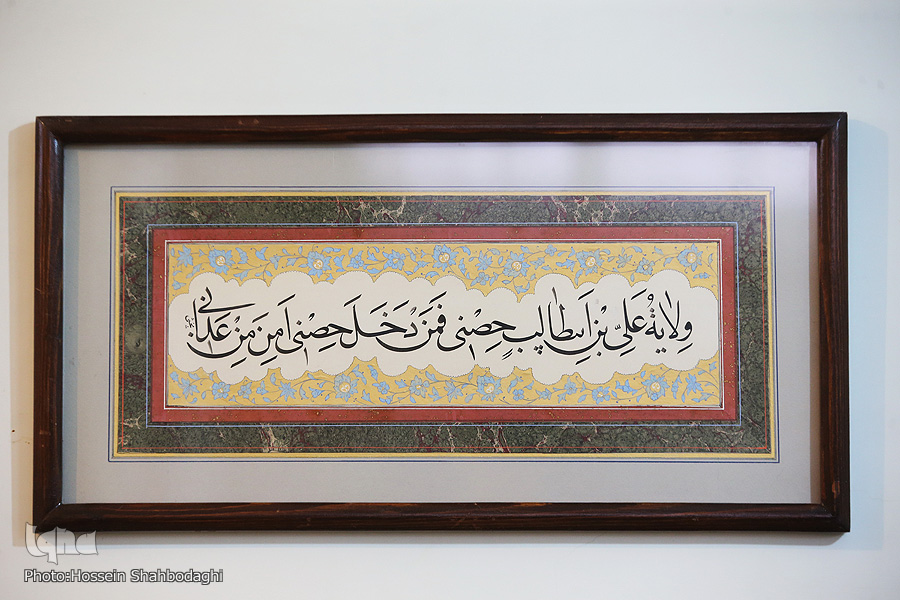 ولایةُ عَلِيّ بْنِ اَبیطالِبٍ حِصْنی فَمَنْ دَخَلَ حِصْنی اَمِنَ مِنْ عَذابی
iqna
Photo:Hossein Shahbodaghi